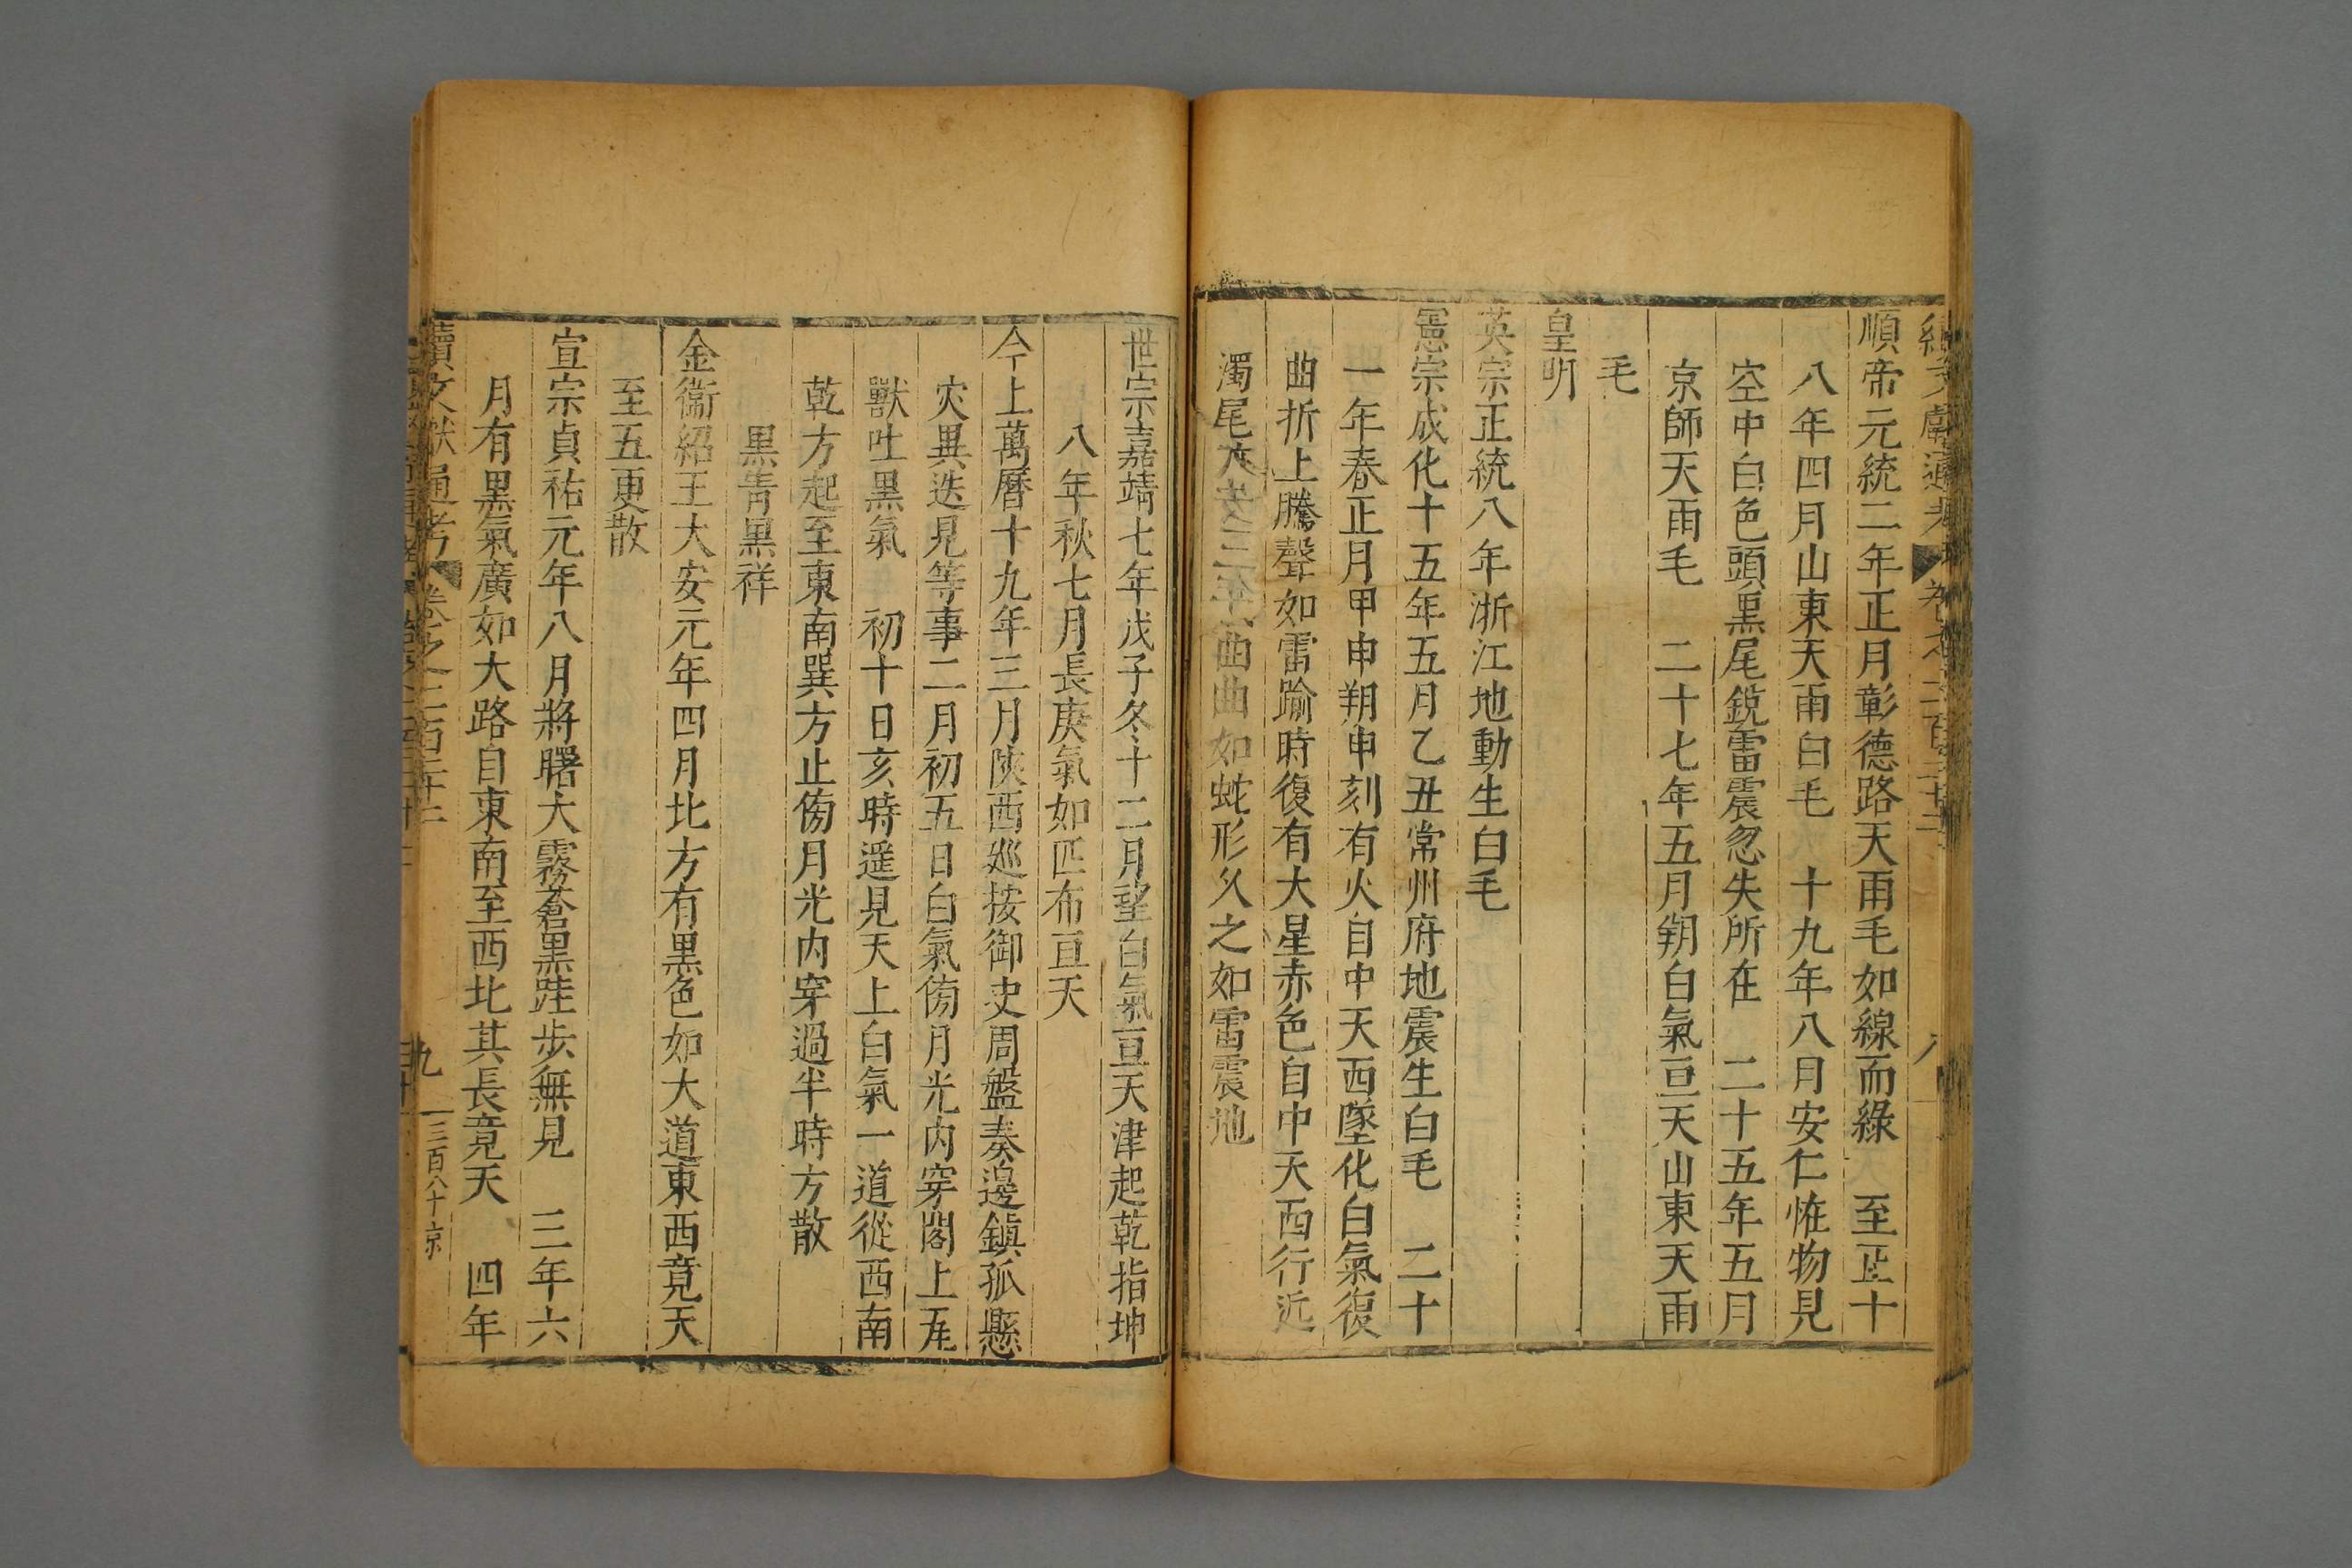 順帝元統二年正月彰德路天雨毛如線而綠　至正十
八年四月山東天雨白毛　十九年八月安仁恠物見
空中白色頭黒尾鋭雷震忽失所在　二十五年五月
京師天雨毛　二十七年五月朔白氣亘天山東天雨
毛
皇明
英宗正統八年浙江地動生白毛
憲宗成化十五年五月乙丑常州府地震生白毛　二十
一年春正月甲申朔申刻有火自中天西墜化白氣復
曲折上騰聲如雷踰時復有大星赤色自中天西行近
濁尾曲曲如蛇形久之如雷震地
世宗嘉靖七年戊子冬十二月望白氣亘天津起乾指坤
八年秋七月長庚氣如匹布亘天
今上萬曆十九年三月陝西巡按御史周盤奏邊鎮孤懸
灾異迭見等事二月初五日白氣傍月光内穿閣上尾
獸吐黒氣　初十日亥時遥見天上白氣一道從西南
乾方起至東南巽方止傍月光内穿過半時方散
黒眚黒祥
金衞紹王大安元年四月北方有黒色如大道東西竟天
至五更散
宣宗貞祐元年八月將曙大霧蒼黒跬步無見　三年六
月有黒氣廣如大路自東南至西北其長竟天　四年
續文獻通考　卷之二百二十二　九　三百八十　京